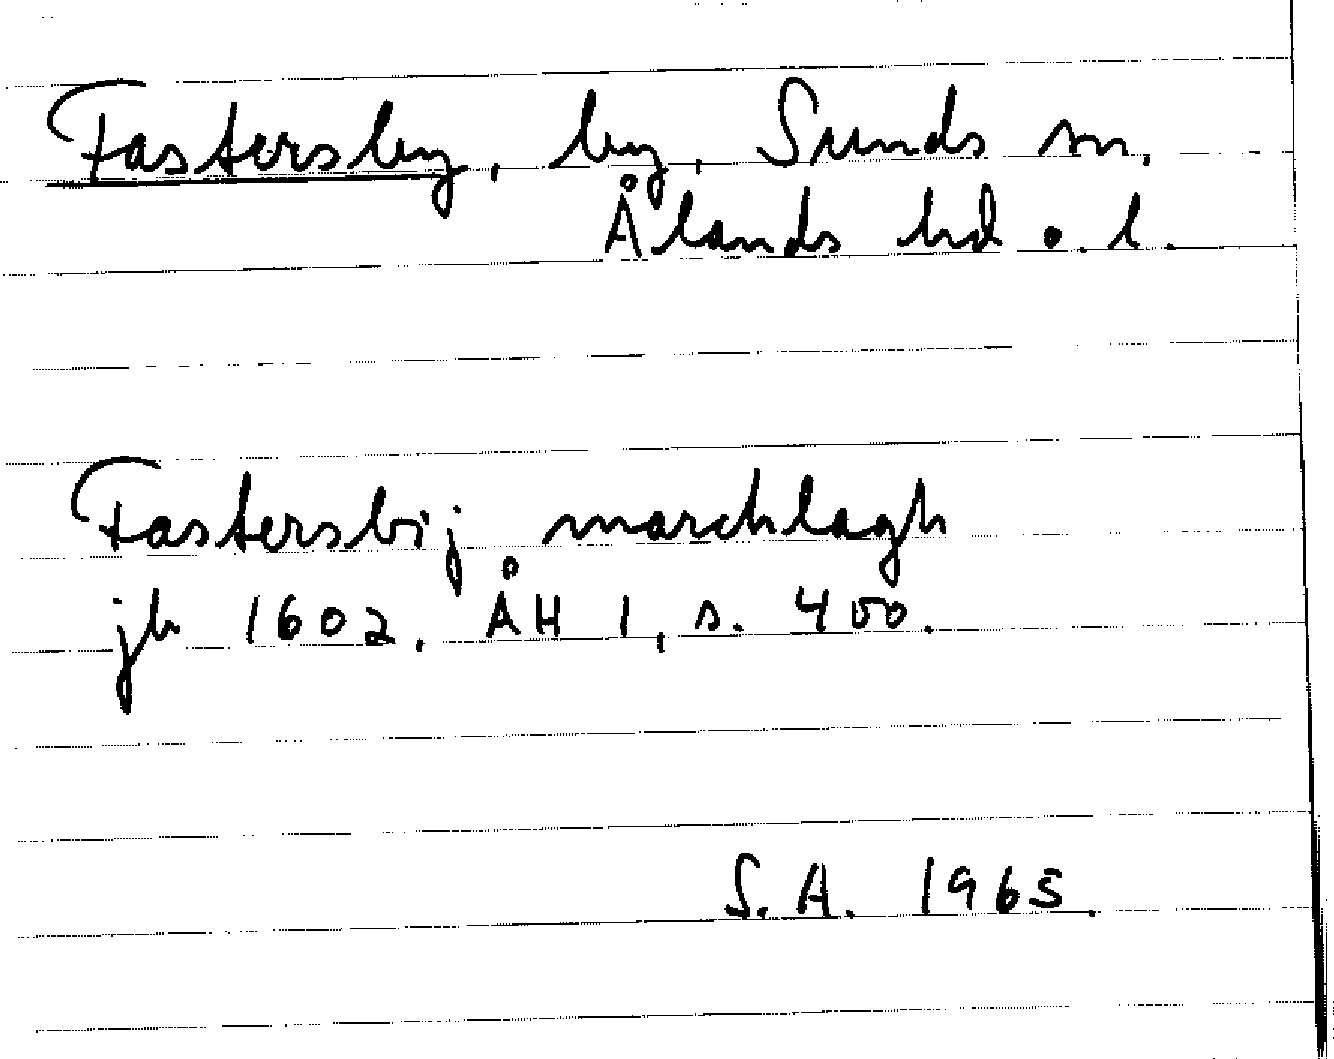 Fastersby, by, Sunds sn.
Ålands hd o. l.
Fastersbij marchlagh
jb 1602. ÅH 1, s. 400.
S.A. 1965.